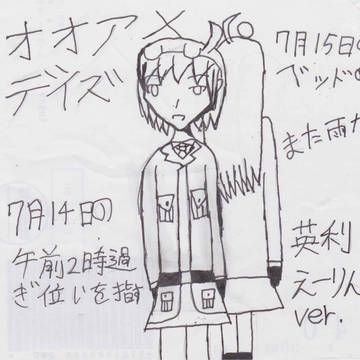 オオアメ
デイズ
7月14日の
午前2時過
ぎ位いを指
7月15日の
ベッドの
また雨が
英利
えーりん
ver.